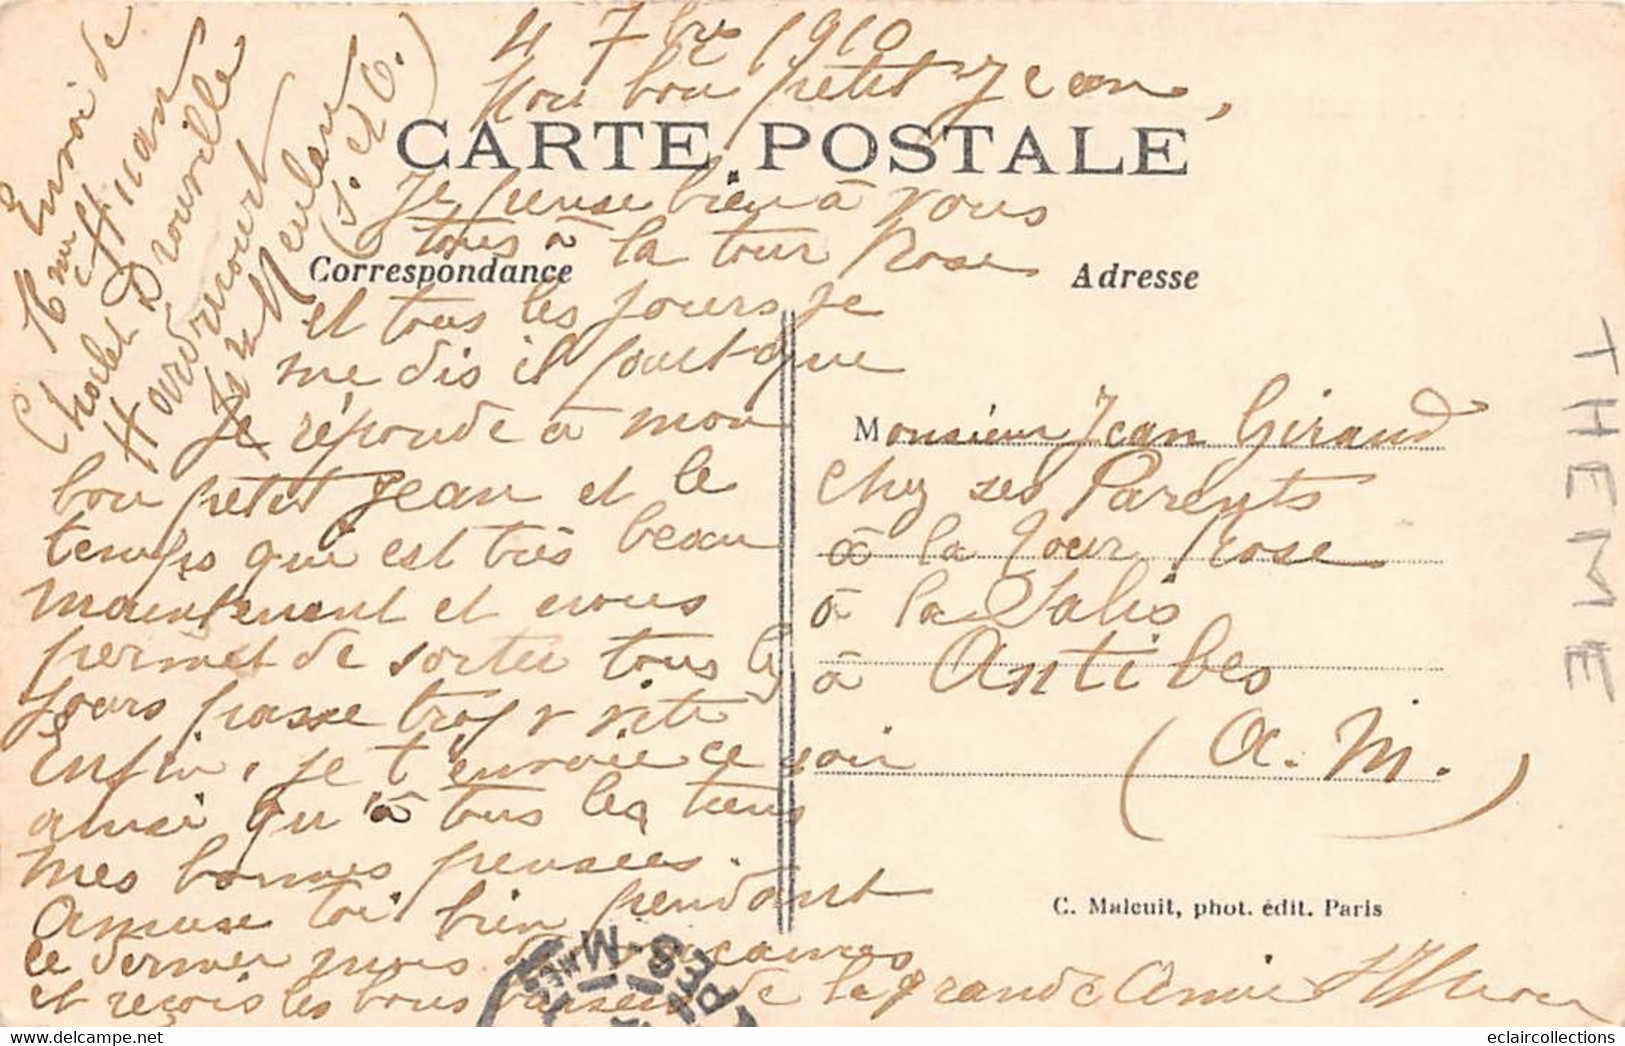 Envoi de
Mme Huan
Chalet Drouville
Hardricourt
par Meulan
(S. et O.)
4 7bre 1910
Mon bon petit Jean,
CARTE POSTALE
Je pense bien à vous
tous à la tour Rose
Correspondance
Adresse
et tous les jours je
me dis il faut que
je réponde à mon
bon petit Jean et le
temps qui est très beau
maintenant et nous
permet de sortir tous les
jours passe trop vite
Enfin, je t'envoie ce soir
ainsi qu'à tous les tiens
mes bonnes pensées.
Amuse toi bien pendant
ce dernier mois de vacances
et reçois les bons baisers de la grande Amie
Monsieur Jean Giraud
chez ses Parents
à la Tour Rose
à la Salis
à Antibes
(A. M.)
C. Maleuit, phot. édit. Paris
THEME
eclaircollections